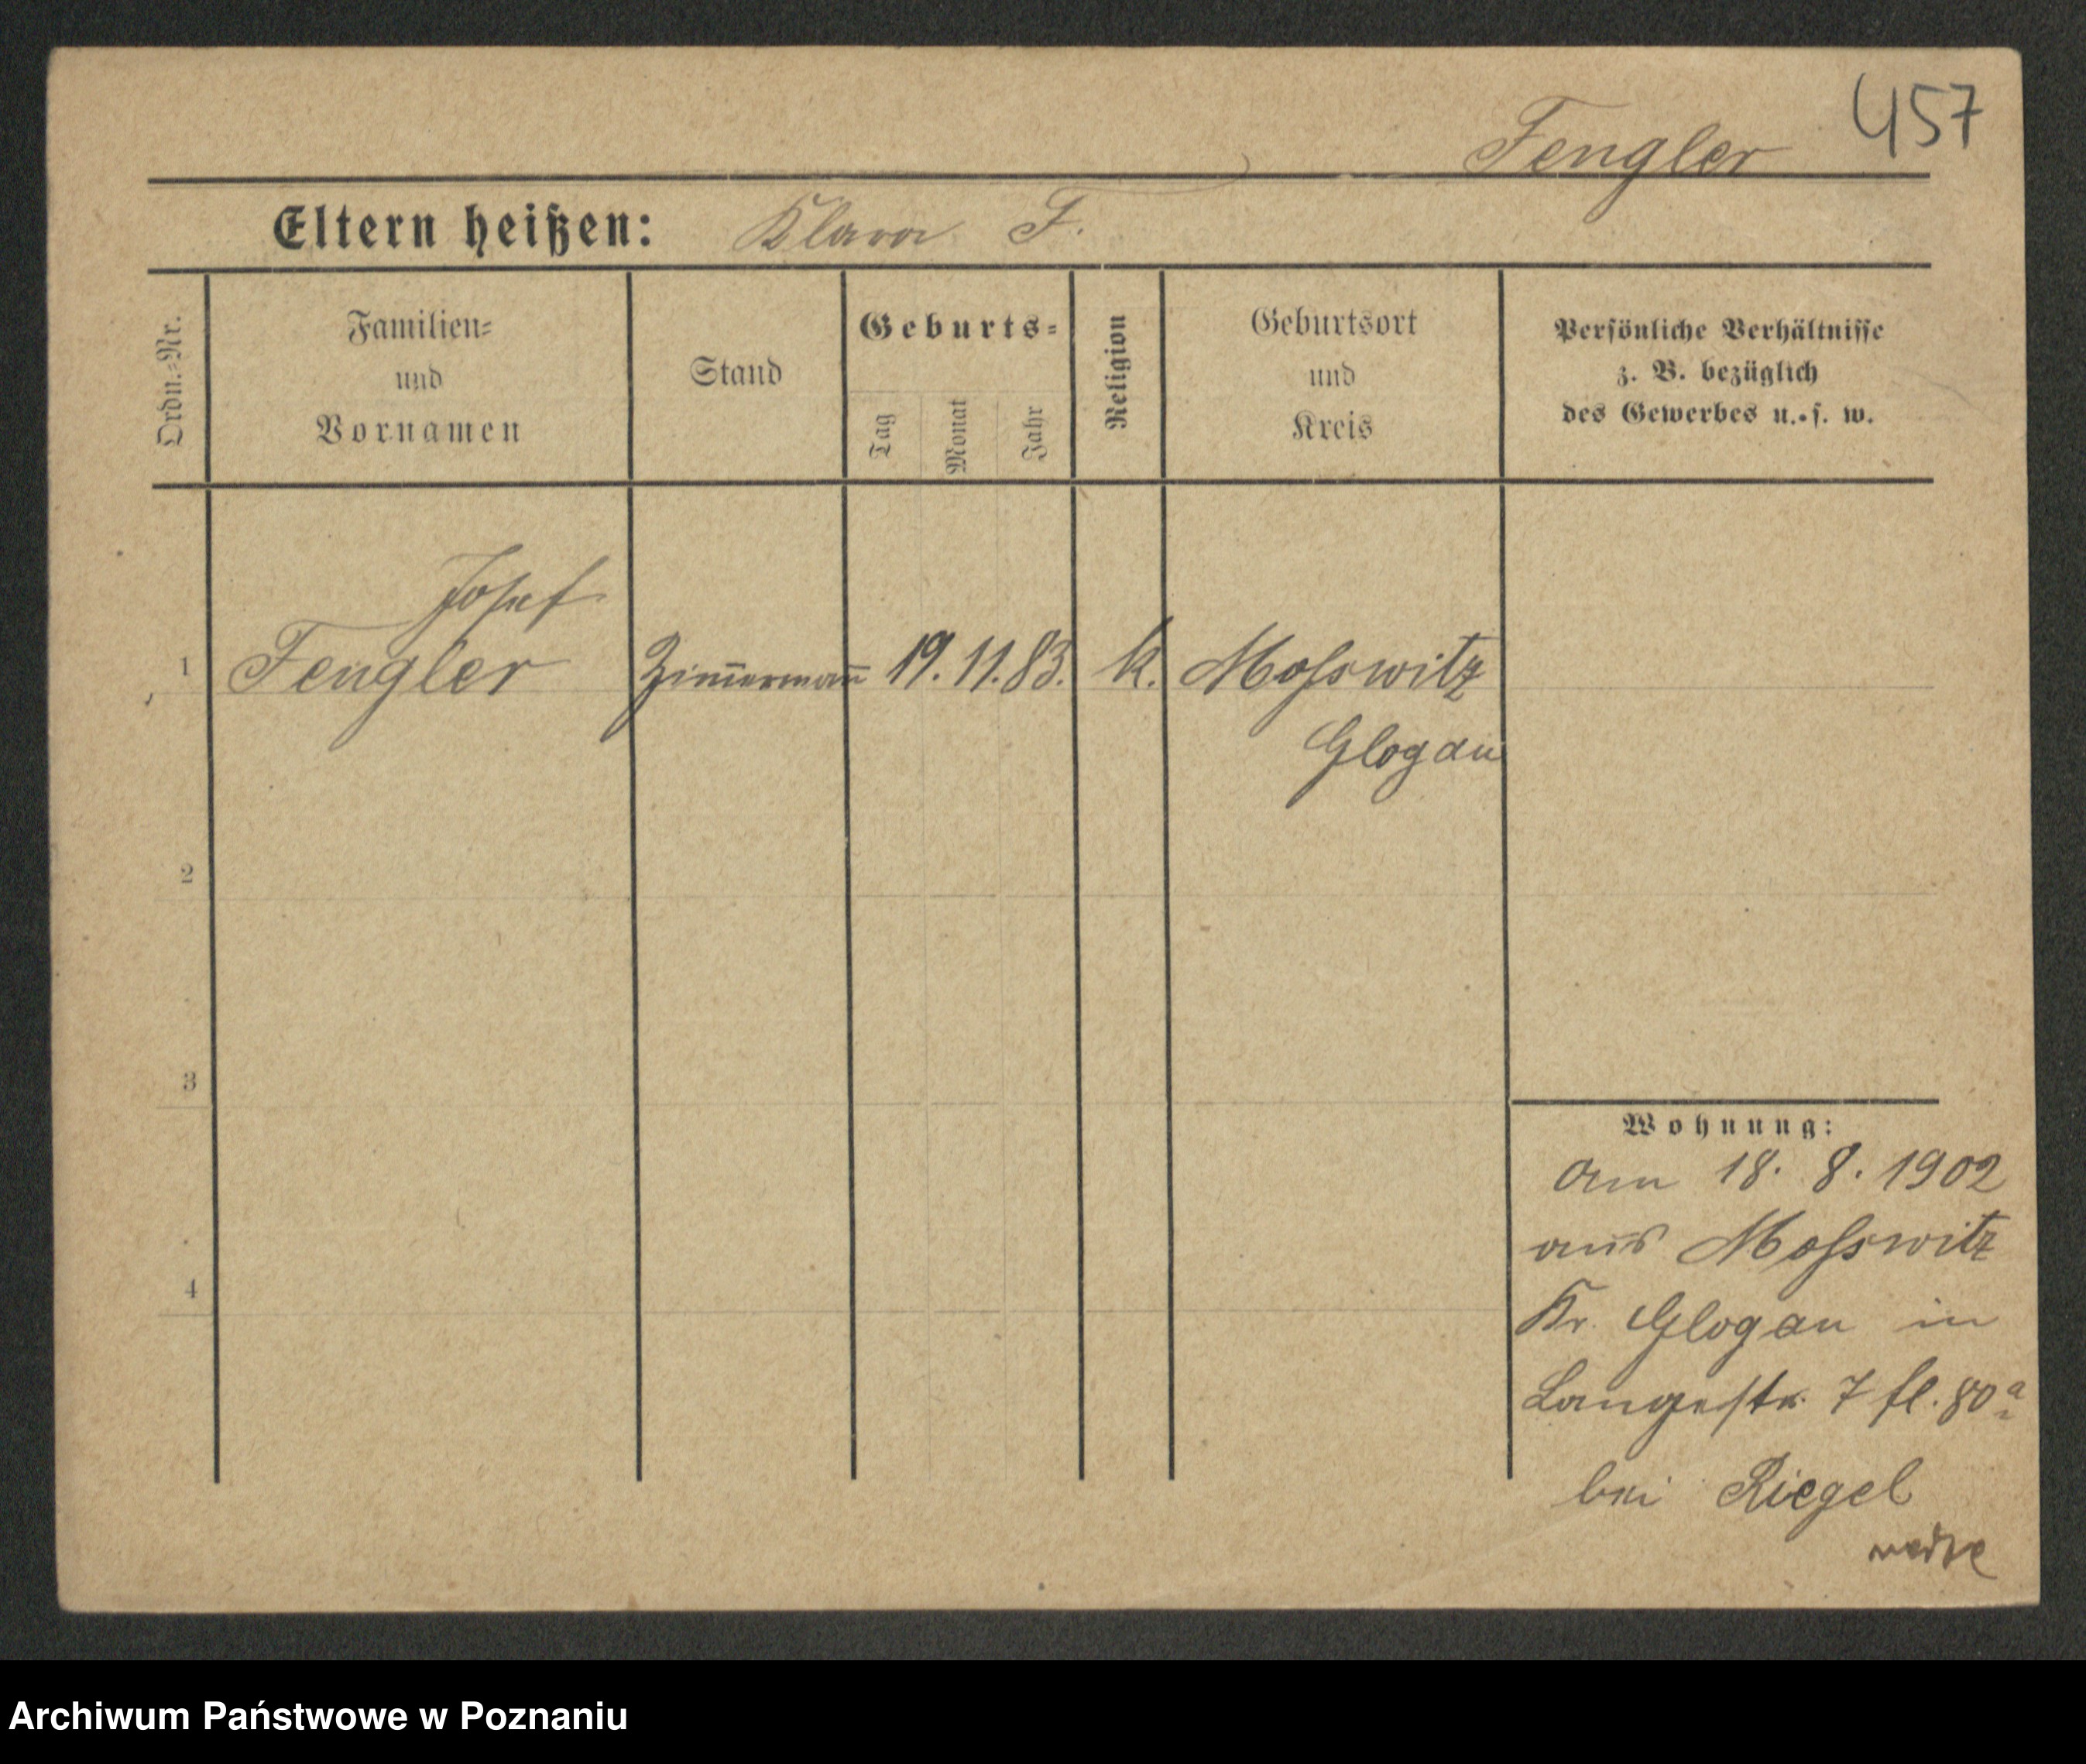 457
Fengler
Eltern heißen: Klara F.
Ordn.-Nr.
Familien-
und
Vornamen
Stand
Geburts-
Tag
Monat
Jahr
Religion
Geburtsort
und
Kreis
Persönliche Verhältnisse
z. B. bezüglich
des Gewerbes u. s. w.
Josef
1 Fengler Zim̅erman̅ 19. 11. 83. k. Mosswitz
Glogau
2
3
4
Wohnung:
Am 18. 8. 1902
aus Mosswitz
Kr. Glogau in
Langestr. 7 fl. 80a
bei Riegel
Archiwum Państwowe w Poznaniu